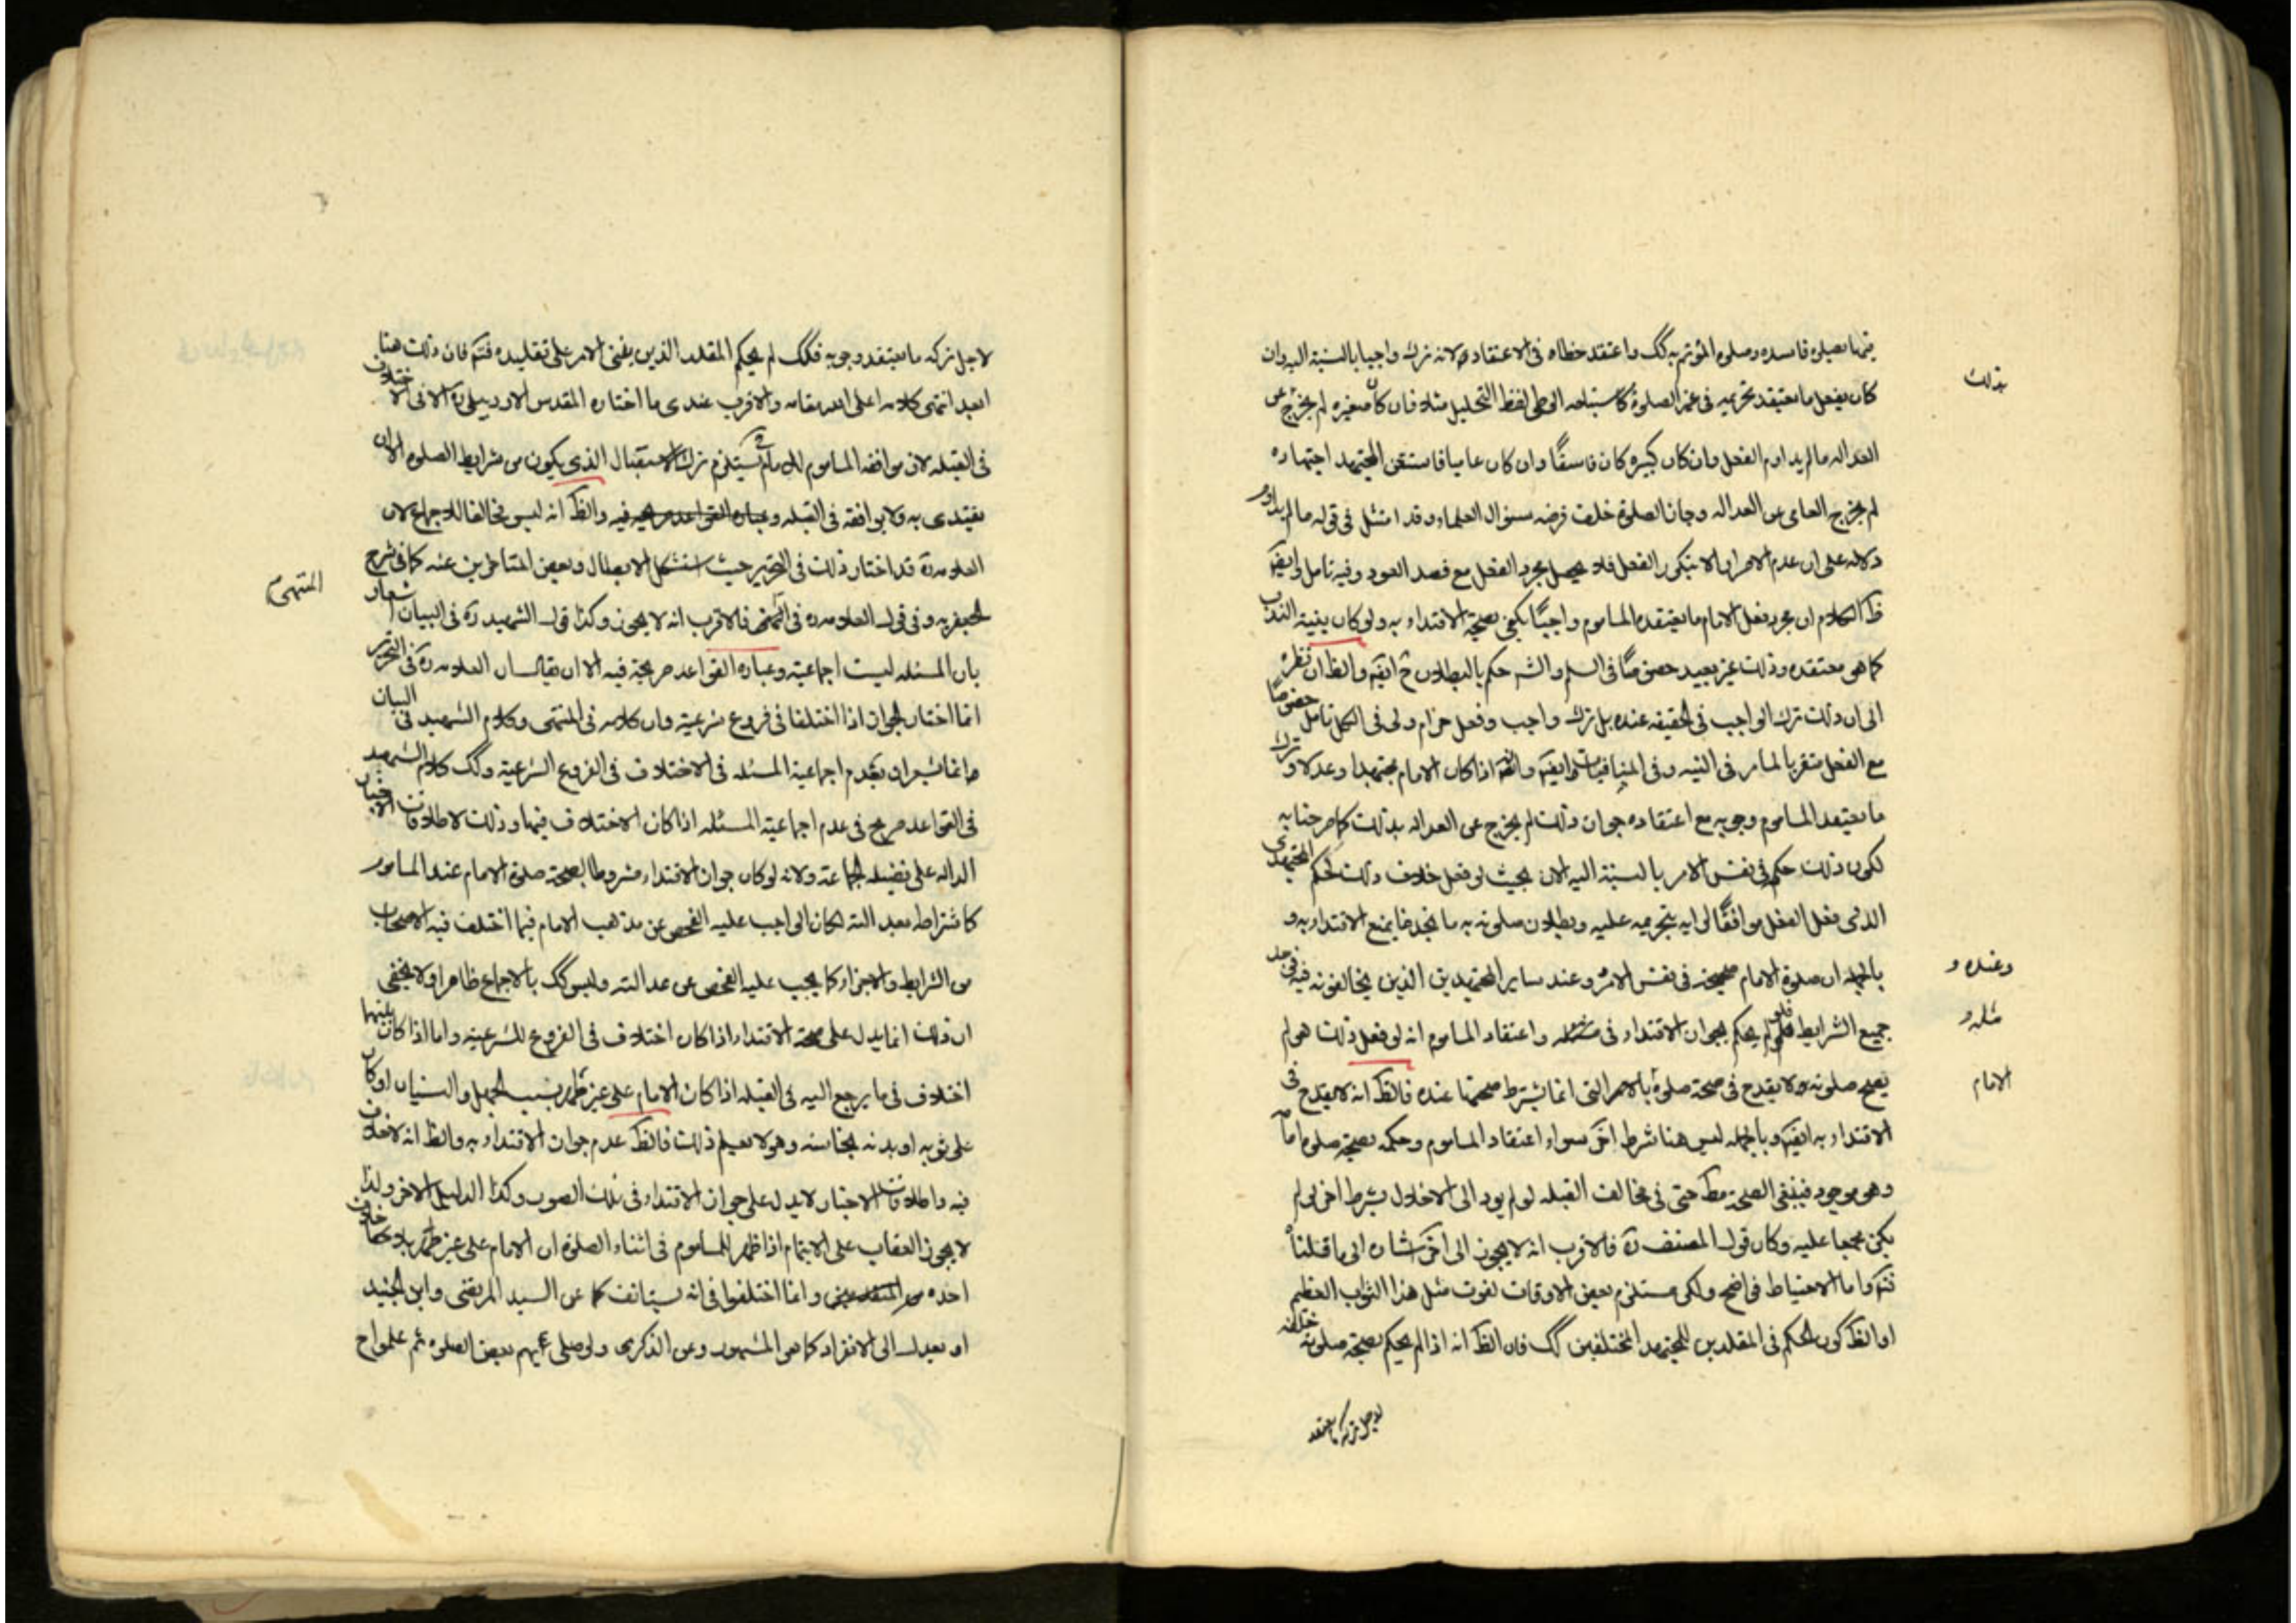 كان يفعل ما يعتقد تحريمه في غير الصلوة كاستباحه الوطي لفظ التحليل مثلا فان كان صغيره لم يخرج عن
بذلك
العداله ما لم يداوم الفعل وان كان كبيره كان فاسقًا وان كان عاميا فاستفتى المجتهد اجتهاده
لم يخرج العامي من العداله وجاز الصلوة خلف فرضه سؤال العلماء وقد امتثل في قوله ما لم يداوم
دلاله على ان عدم الاصرار الا بتكرر الفعل فلا يحصل بمجرد الفعل مع قصد العود وفيه تامل وايضًا
ظ الكلام ان مجرد فعل الامام ما يعتقده الماموم واجبًا يكفي بصحة الاقتداء به ولو كان بنية الندب
كما هو معتقده وذلك غير بعيد خصوصًا في السلم والشـ حكم بالبطلان ح ايضًا والظ ان نظره
الى ان ذلك ترك الواجب في الحقيقه عنده بل ترك واجب وفعل حرام ولى في الكل تامل خصوصًا
اذا كان الامام مجتهدا وعدلا وترك
ما يعتقد الماموم وجوبه مع اعتقاده جواز ذلك لم يخرج عن العداله بذلك كما صرحنا به
لكون ذلك حكم في نفس الامر بالنسبة اليه الان بحيث لو فعل خلاف ذلك الحكم المجتهدى
الذى فعل الفعل موافقًا لرايه بتحريمه عليه وبطلان صلوته به
بالجمله ان صلوة الامام صحيحة في نفس الامر وعند ساير المجتهدين الذين يخالفونه فيه في حد
وعنده و
جميع الشرايط فلو لم يحكم بجواز الاقتداء في مثله واعتقاد الماموم انه لو فعل ذلك هو لم
مثله و
يصح صلوته ولا يقدح في صحة صلوة بالامر التي انما يشترط صحتها عنده فالظ انه لا يقدح في
الامام
الاقتداء به ايضًا وبالجمله ليس هنا شرط اخر سواء اعتقاد الماموم وحكمه بصحة صلوة امامه
وهو موجود فينبغي الصحة مط حتى في مخالف القبله لو لم يود الى الاخلال بشرط اخر لو لم
يكن مجمعا عليه وكان قول المصنف ره فالاقرب انه لا يجوز الى اخره اشاره الى ما قلناه
واما الاحتياط فواضح ولكن مستلزم بعض الاوقات لفوت مثل هذا الثواب العظيم
او الظ كون الحكم في المقلدين للمجتهد المختلفين كك فان الظ انه اذا لم يحكم بصحة صلوته خلفه
لاجل تركه ما يعتقد
لاجل تركه ما يعتقد وجوبه فكك لم يحكم المقلد الذين بفتى الامر على تقليده فتم فان ذلك هنا
ابعد انتهى كلامه اعلى الله مقامه والاقرب عندى ما اختاره المقدس الاردبيلى ره الا في الاختلاف
في القبله لان موافقه الماموم للامام تستلزم ترك الاستقبال الذى يكون من شرايط الصلوه الا ان
يقتدى به ولا يوافقه في القبله والظ انه ليس مخالفا للاجماع لان
العلامه ره قد اختار ذلك في التحرير حيث استشكل الابطال وبعض المتاخرين عنه كما في شرح
المنتهى
الجعفريه وفي قول العلامه ره في المنتهى فالاقرب انه لا يجوز وكذا قول الشهيد ره في البيان اشعار
بان المسئله ليست اجماعية وعباره القواعد صريحة فيه الا ان يقال ان العلامه ره في التحرير
انما اختار الجواز اذا اختلفا في فروع شرعية وان كلامه في المنتهى وكلام الشهيد في البيان
انما يشعران بعدم اجماعية المسئله في الاختلاف في الفروع الشرعية وكك كلام الشهيد
في القواعد صريح في عدم اجماعية المسئله اذا كان الاختلاف فيها وذلك لاطلاقات الاخبار
الداله على فضيله الجماعة ولانه لو كان جواز الاقتداء مشروطا بصحة صلوة الامام عند الماموم
كاشتراطه بعدالته لكان الواجب عليه الفحص عن مذهب الامام فيما اختلف فيه الاصحاب
من الشرايط والاجزاء كما يجب عليه الفحص عن عدالته وليس كك بالاجماع ظاهرا ولا يخفى
ان ذلك انما يدل على صحة الاقتداء اذا كان اختلاف في الفروع الشرعية واما اذا كان بينهما
اختلاف في ما يرجع اليه في القبله اذا كان الامام على غير طهر بسبب الجهل والنسيان او كان
على ثوبه او بدنه نجاسه وهو لا يعلم ذلك فالظ عدم جواز الاقتداء به والظ انه لا خلاف
فيه واطلاقات الاخبار لا يدل على جواز الاقتداء في تلك الصور وكذا الدليل الاخر ولذا
لا يجوز العقاب على الايتمام اذا ظهر للماموم في اثناء الصلوة ان الامام على غير طهر بلا خلاف
وانما اختلفوا في انه يستانف كما عن السيد المرتضى وابن الجنيد
او يعدل الى الانفراد كما هو المشهور وعن الذكرى ولو صلى بهم بعض الصلوه ثم علموا ح